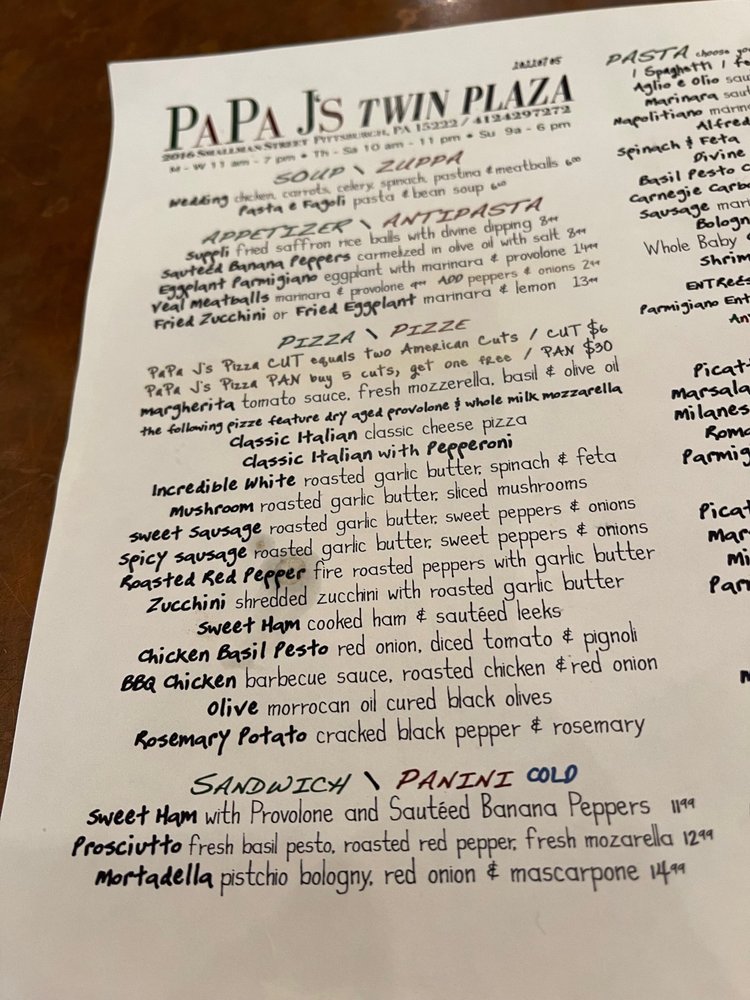 20220705
PaPa J's Twin Plaza
2016 Smallman Street Pittsburgh, PA 15222 / 4124297272
M - W 11 am - 7 pm • Th - Sa 10 am - 11 pm • Su 9a - 6 pm
SOUP \ ZUPPA
Wedding chicken, carrots, celery, spinach, pastina & meatballs 6⁰⁰
Pasta e Fagoli pasta & bean soup 6⁰⁰
APPETIZER \ ANTIPASTA
Suppli fried saffron rice balls with divine dipping 8⁹⁹
Sautéed Banana Peppers carmelized in olive oil with salt 8⁹⁹
Eggplant Parmigiano eggplant with marinara & provolone 14⁹⁹
Veal Meatballs marinara & provolone 9⁹⁹ ADD peppers & onions 2⁹⁹
Fried Zucchini or Fried Eggplant marinara & lemon 13⁹⁹
PIZZA \ PIZZE
PaPa J's Pizza CUT equals two American Cuts / CUT $6
PaPa J's Pizza PAN buy 5 cuts, get one free / PAN $30
margherita tomato sauce, fresh mozzerella, basil & olive oil
the following pizze feature dry aged provolone & whole milk mozzarella
Classic Italian classic cheese pizza
Classic Italian with Pepperoni
Incredible White roasted garlic butter, spinach & feta
Mushroom roasted garlic butter, sliced mushrooms
Sweet Sausage roasted garlic butter, sweet peppers & onions
Spicy Sausage roasted garlic butter, sweet peppers & onions
Roasted Red Pepper fire roasted peppers with garlic butter
Zucchini shredded zucchini with roasted garlic butter
Sweet Ham cooked ham & sautéed leeks
Chicken Basil Pesto red onion, diced tomato & pignoli
BBQ Chicken barbecue sauce, roasted chicken & red onion
Olive morrocan oil cured black olives
Rosemary Potato cracked black pepper & rosemary
SANDWICH \ PANINI COLD
Sweet Ham with Provolone and Sautéed Banana Peppers 11⁹⁹
Prosciutto fresh basil pesto, roasted red pepper, fresh mozarella 12⁹⁹
Mortadella pistchio bologny, red onion & mascarpone 14⁹⁹
PASTA choose
Spaghetti
Aglio e Olio
Marinara
Napolitiano
Spinach & Feta
Divine
Basil Pesto
Carnegie
Sausage
Whole Baby
ENTREES
Parmigiano